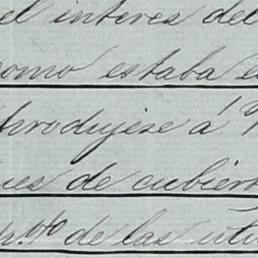 el interes del
como estaba e
trodujese á
ues de cubier
de las